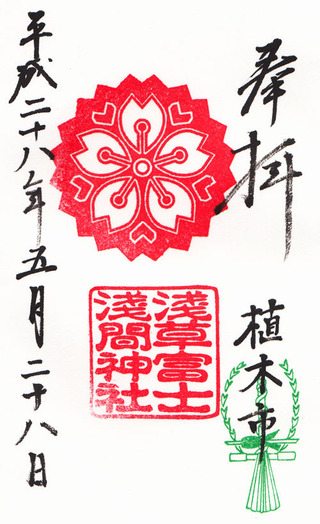 奉拝
植木市
淺草富士
淺間神社
平成二十八年五月二十八日